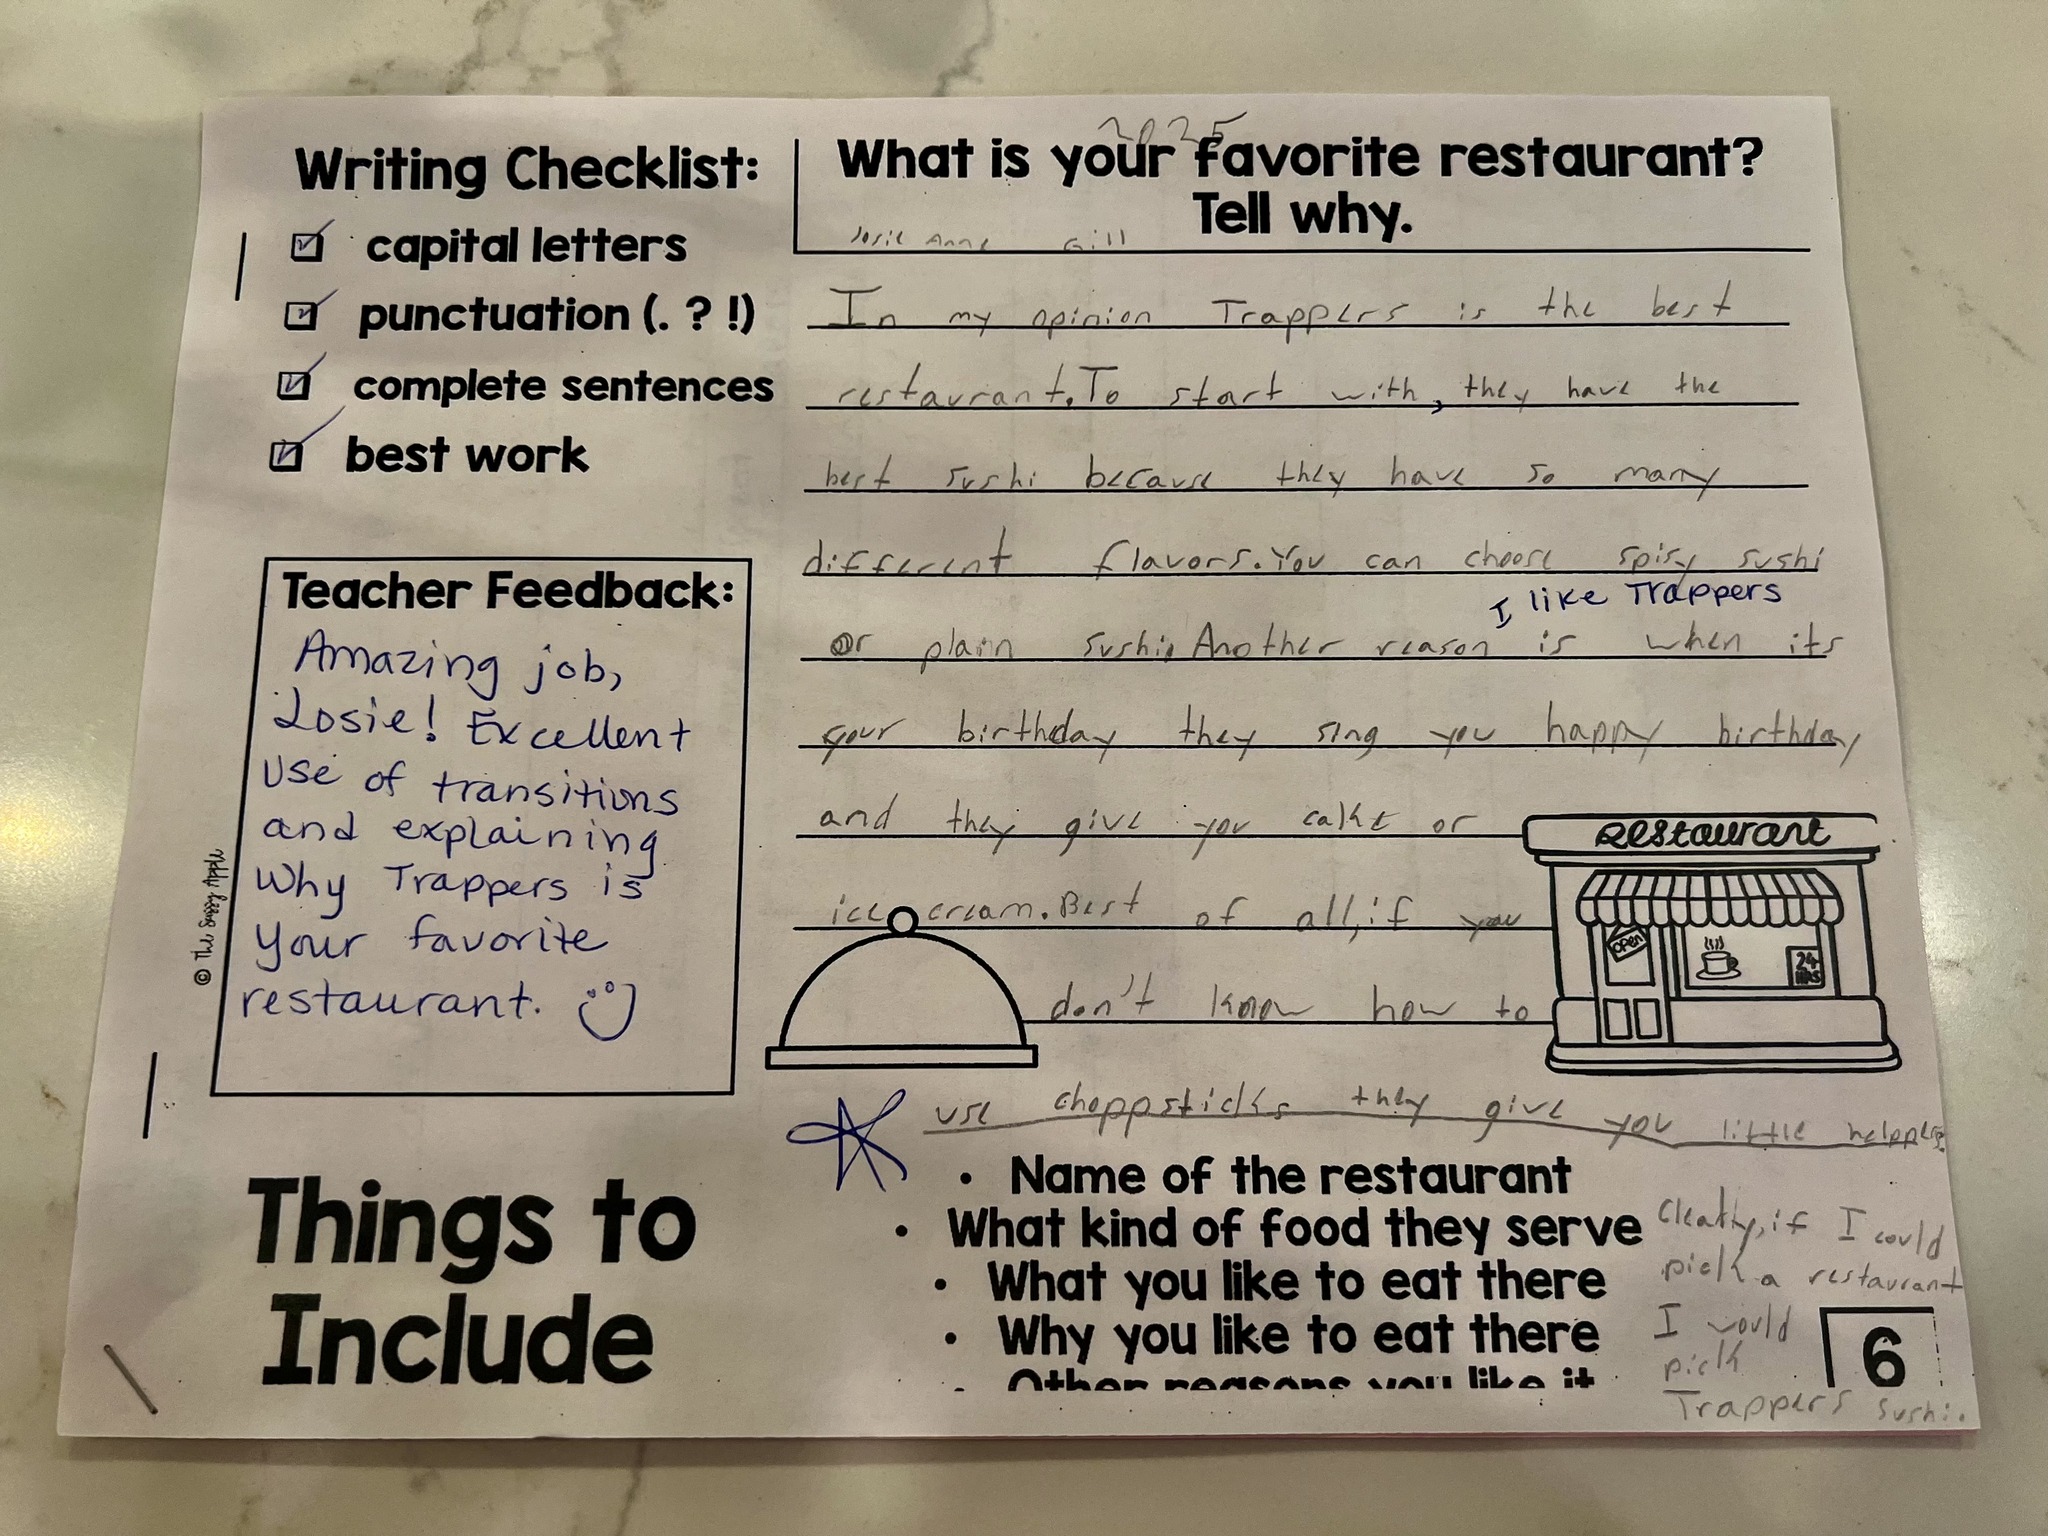 2025
Writing Checklist:
capital letters
punctuation (. ? !)
complete sentences
best work
Teacher Feedback:
Amazing job,
Josie! Excellent
use of transitions
and explaining
Why Trappers is
your favorite
restaurant.
© The Sassy Apple
What is your favorite restaurant?
Tell why.
Josie Anne Gill
In my opinion Trappers is the best
restaurant. To start with, they have the
best sushi because they have so many
different flavors. You can choose spisy sushi
I like Trappers
or plain sushi. Another reason is when its
your birthday they sing you happy birthday
and they give you cake or
ice cream. Best of all, if you
don't know how to
use choppsticks they give you little helppers.
Restaurant
open
24
HRS
Things to
Include
• Name of the restaurant
• What kind of food they serve
• What you like to eat there
• Why you like to eat there
• Other reasons you like it
if I could
pick a restaurant
I would
pick
Trappers sushi.
6